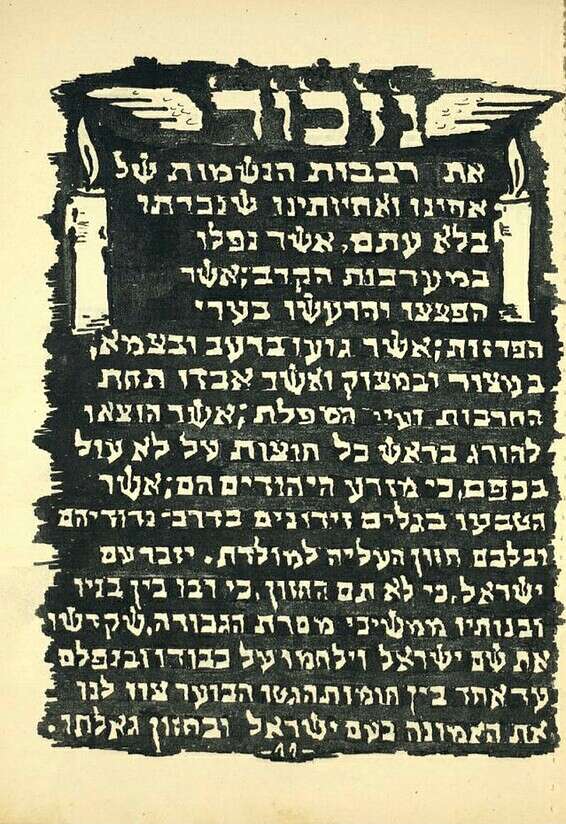 נזכור
את רבבות הנשמות של
אחינו ואחיותינו שנכרתו
בלא עתם, אשר נפלו
במערכות הקרב; אשר
הפצצו והרעשו בערי
הפרזות; אשר גועו ברעב ובצמא,
במצור ובמצוק ואשר אבדו תחת
החרבות ועיי המפלת; אשר הוצאו
להורג בראש כל חוצות על לא עול
בכפם, כי מזרע היהודים הם; אשר
הטבעו בגלים זידונים בדרכי נדודיהם
ובלבם חזון העליה למולדת. יזכר עם
ישראל, כי לא תם החזון, כי רבו בין בניו
ובנותיו ממשיכי מסרת הגבורה, שקדשו
את שם ישראל וילחמו על כבודו ובנפלם
עד אחד בין חומות הגטו הבוער צוו לנו
את האמונה בעם ישראל ובחזון גאלתו.
-11-